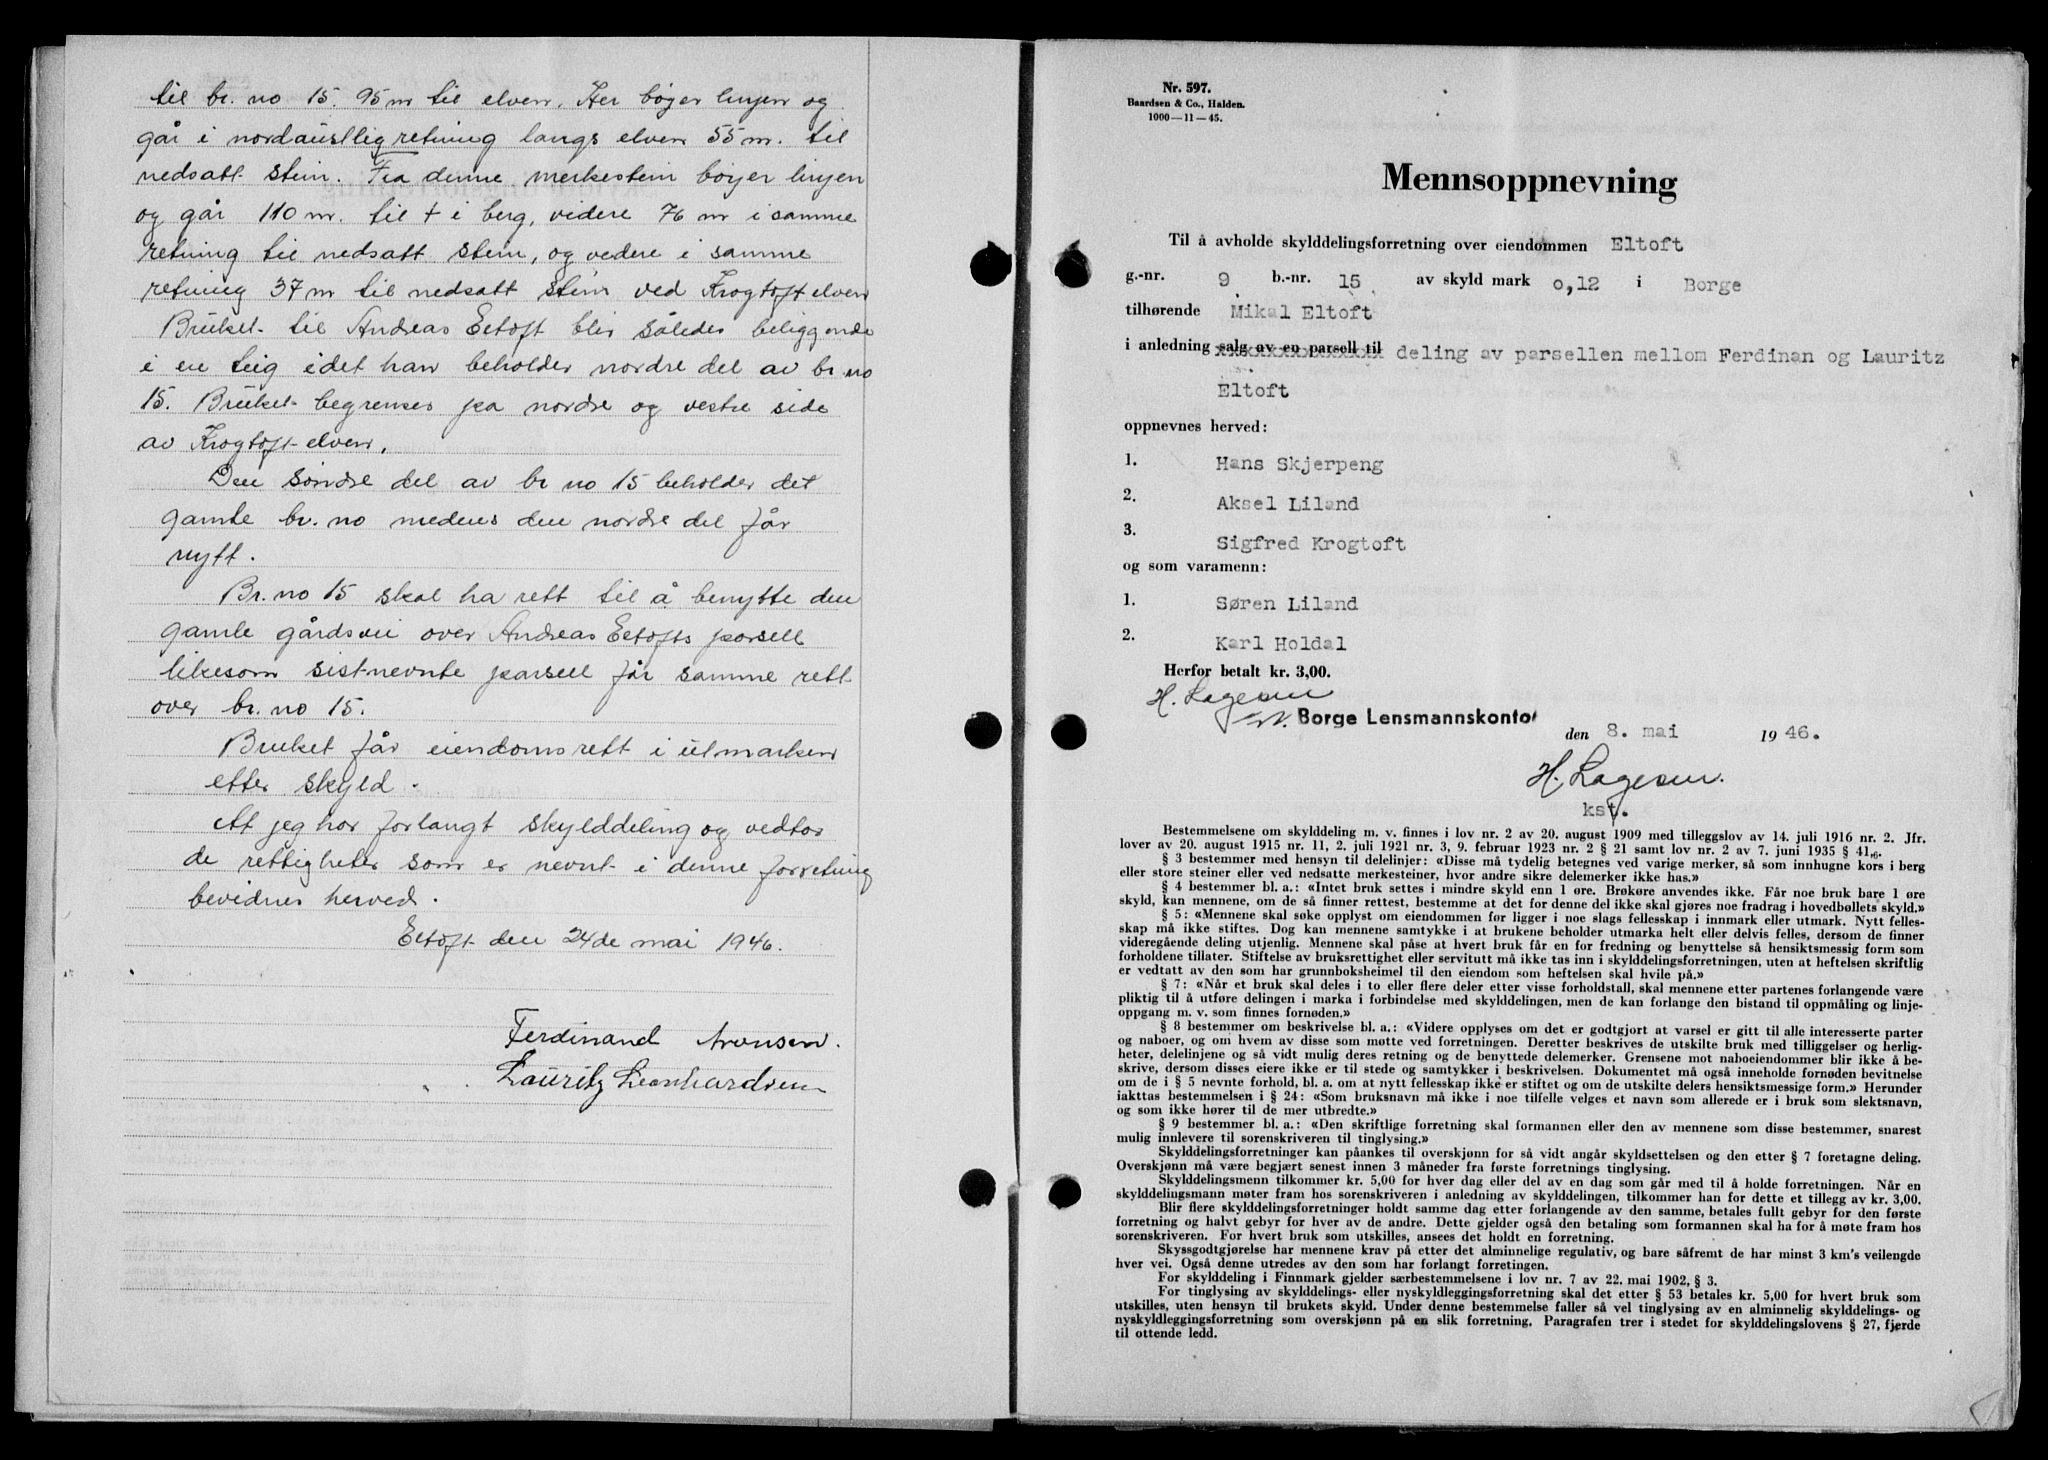 til br. no 15. 95 m til elven. Her bøyer linjen og
går i nordaustlig retning langs elven 55 m. til
nedsatt stein. Fra denne merkestein bøyer linjen
og går 110 m. til + i berg, videre 76 m i samme
retning til nedsatt stein, og videre i samme
retning 37 m til nedsatt stein ved Krogtoft elven
Bruket til Andreas Eltoft blir således beliggende
i en teig idet han beholder nordre del av br. no
15. Bruket begrenses på nordre og vestre side
av Krogtoft-elven.
Den søndre del av br no 15 beholder det
gamle br. no medens den nordre del får
nytt.
Br. no 15 skal ha rett til å benytte den
gamle gårdsvei over Andreas Eltofts parsell
likesom sistnevnte parsell får samme rett
over br. no 15.
Bruket får eiendomsrett i utmarken
etter skyld.
At jeg har forlangt skylddeling og vedtar
de rettigheter som er nevnt i denne forretning
bevidnes herved.
Eltoft den 24de mai 1946.
Ferdinand Aronsen.
Lauritz Leonhardsen
Nr. 597.
Baardsen & Co., Halden.
1000—11—45.
Mennsoppnevning
Til å avholde skylddelingsforretning over eiendommen Eltoft
g.-nr. 9 b.-nr. 15 av skyld mark 0,12 i Borge
tilhørende Mikal Eltoft
i anledning salg av en parsell til deling av parsellen mellom Ferdinan og Lauritz
Eltoft
oppnevnes herved:
1. Hans Skjerpeng
2. Aksel Liland
3. Sigfred Krogtoft
og som varamenn:
1. Søren Liland
2. Karl Holdal
Herfor betalt kr. 3,00.
H. Lagesen
Borge Lensmannskontor den 8. mai 1946.
H. Lagesen.
kst.
Bestemmelsene om skylddeling m. v. finnes i lov nr. 2 av 20. august 1909 med tilleggslov av 14. juli 1916 nr. 2. Jfr.
lover av 20. august 1915 nr. 11, 2. juli 1921 nr. 3, 9. februar 1923 nr. 2 § 21 samt lov nr. 2 av 7. juni 1935 § 41,6.
§ 3 bestemmer med hensyn til delelinjer: «Disse må tydelig betegnes ved varige merker, så som innhugne kors i berg
eller store steiner eller ved nedsatte merkesteiner, hvor andre sikre delemerker ikke has.»
§ 4 bestemmer bl. a.: «Intet bruk settes i mindre skyld enn 1 øre. Brøkøre anvendes ikke. Får noe bruk bare 1 øre
skyld, kan mennene, om de så finner rettest, bestemme at det for denne del ikke skal gjøres noe fradrag i hovedbøllets skyld.»
§ 5: «Mennene skal søke opplyst om eiendommen før ligger i noe slags fellesskap i innmark eller utmark. Nytt felles-
skap må ikke stiftes. Dog kan mennene samtykke i at brukene beholder utmarka helt eller delvis felles, dersom de finner
videregående deling utjenlig. Mennene skal påse at hvert bruk får en for fredning og benyttelse så hensiktsmessig form som
forholdene tillater. Stiftelse av bruksrettighet eller servitutt må ikke tas inn i skylddelingsforretningen, uten at heftelsen skriftlig
er vedtatt av den som har grunnboksheimel til den eiendom som heftelsen skal hvile på.»
§ 7: «Når et bruk skal deles i to eller flere deler etter visse forholdstall, skal mennene etter partenes forlangende være
pliktig til å utføre delingen i marka i forbindelse med skylddelingen, men de kan forlange den bistand til oppmåling og linje-
oppgang m. v. som finnes fornøden.»
§ 8 bestemmer om beskrivelse bl. a.: «Videre opplyses om det er godtgjort at varsel er gitt til alle interesserte parter
og naboer, og om hvem av disse som møtte ved forretningen. Deretter beskrives de utskilte bruk med tilliggelser og herlig-
heter, delelinjene og så vidt mulig deres retning og de benyttede delemerker. Grensene mot naboeiendommer blir ikke å be-
skrive, dersom disses eiere ikke er til stede og samtykker i beskrivelsen. Dokumentet må også inneholde fornøden bevitnelse
om de i § 5 nevnte forhold, bl. a. om at nytt fellesskap ikke er stiftet og om de utskilte delers hensiktsmessige form.» Herunder
iakttas bestemmelsen i § 24: «Som bruksnavn må ikke i noe tilfelle velges et navn som allerede er i bruk som slektsnavn,
og som ikke hører til de mer utbredte.»
§ 9 bestemmer bl. a.: «Den skriftlige forretning skal formannen eller den av mennene som disse bestemmer, snarest
mulig innlevere til sorenskriveren til tinglysing.»
Skylddelingsforretninger kan påankes til overskjønn for så vidt angår skyldsettelsen og den etter § 7 foretagne deling.
Overskjønn må være begjært senest innen 3 måneder fra første forretnings tinglysing.
Skylddelingsmenn tilkommer kr. 5,00 for hver dag eller del av en dag som går med til å holde forretningen. Når en
skylddelingsmann møter fram hos sorenskriveren i anledning av skylddelingen, tilkommer han for dette et tillegg av kr. 3,00.
Blir flere skylddelingsforretninger holdt samme dag etter forlangende av den samme, betales fullt gebyr for den første
forretning og halvt gebyr for hver av de andre. Dette gjelder også den betaling som formannen skal ha for å møte fram hos
sorenskriveren. For hvert bruk som utskilles, ansees det holdt en forretning.
Skyssgodtgjørelse har mennene krav på etter det alminnelige regulativ, og bare såfremt de har minst 3 km's veilengde
hver vei. Også denne utredes av den som har forlangt forretingen.
For skylddeling i Finnmark gjelder særbestemmelsene i lov nr. 7 av 22. mai 1902, § 3.
For tinglysing av skylddelings- eller nyskyldleggingsforretning skal det etter § 53 betales kr. 5,00 for hvert bruk som
utskilles, uten hensyn til brukets skyld. Under denne bestemmelse faller så vel tinglysing av en alminnelig skylddelings- og
nyskyldleggingsforretning som overskjønn på en slik forretning. Paragrafen trer i stedet for skylddelingslovens § 27, fjerde
til ottende ledd.